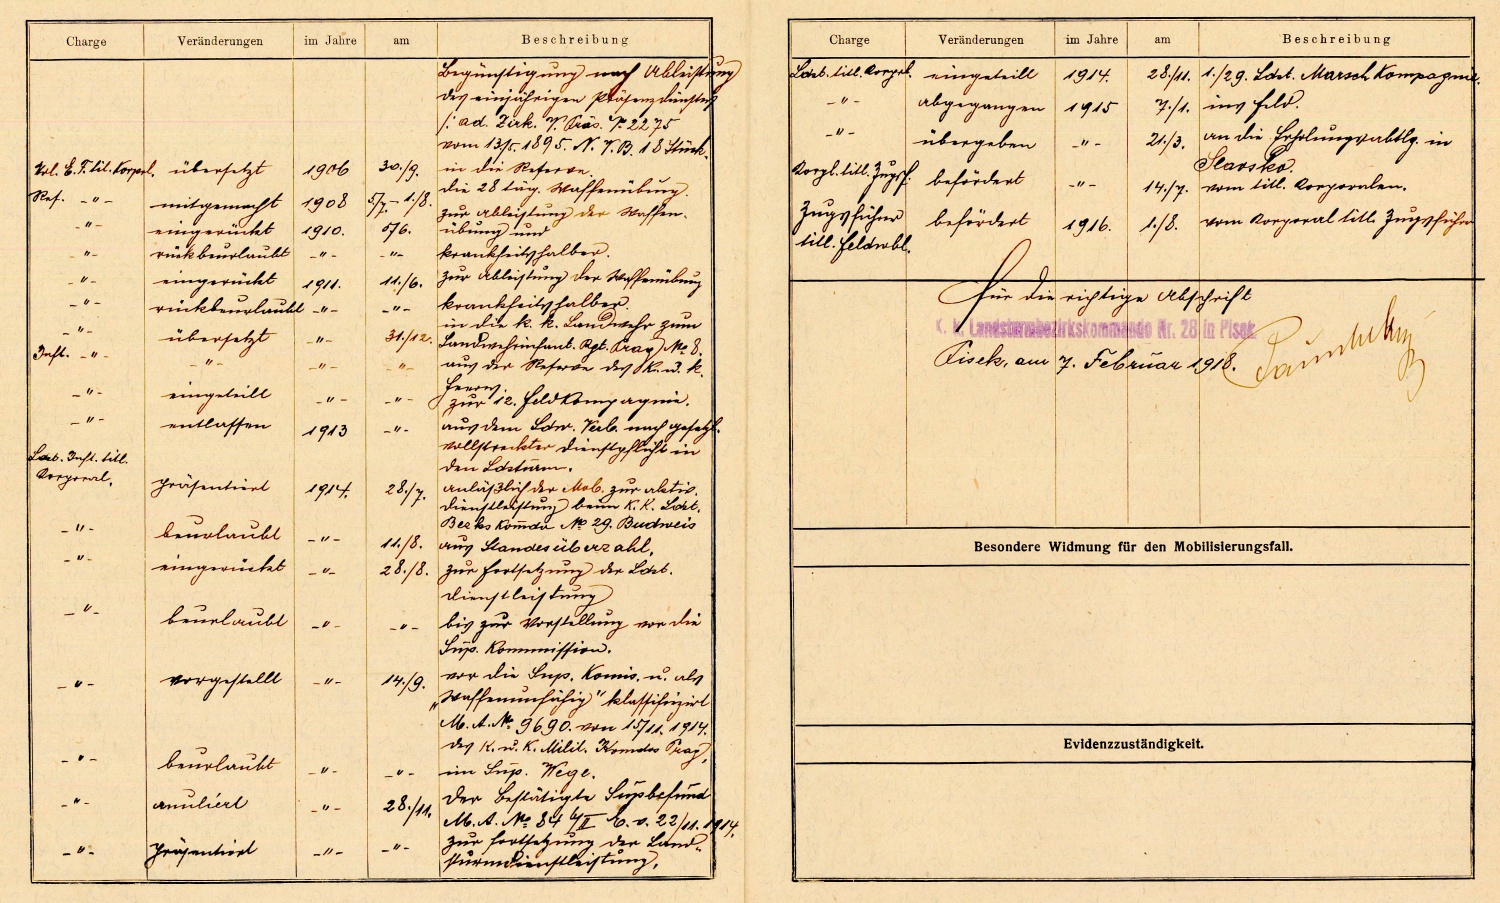 Charge Veränderungen im Jahre am Beschreibung
Begünstigung nach Ableistung
des einjährigen Präsenzdienstes
/: ad. Zirk. V. Präs. № 2275
vom 13/5. 1895. N. V. B. 18 Stück.
E. F. tit. Korporl. übersetzt 1906 30./9. in die Reserve.
Res. -"- mitgemacht 1908 5/7.-1./8. die 28 täg. Waffenübung
-"- eingerückt 1910. 5/6. zur Ableistung der Waffen-
übung und
-"- rückbeurlaubt -"- -"- krankheitshalber.
-"- eingerückt 1911. 11./6. zur Ableistung der Waffenübung
-"- rückbeurlaubt -"- -"- krankheitshalber.
-"- übersetzt -"- 31/12. in die k. k. Landwehr zum
Landwehrinfant. Rgt. Prag № 8.
Inft. -"- -"- -"- -"- aus der Reserve des k. u. k.
Heeres.
-"- eingeteilt -"- -"- zur 12. Feldkompagnie.
-"- entlassen 1913 -"- aus dem Ldw. Verb. nach gesetzl.
vollstreckter Dienstpflicht in
den Ldsturm.
Ldst. Inft. titl.
Korporal. präsentiert 1914. 28./7. anläßlich der Mob. zur aktiv.
Dienstleistung beim K. K. Ldst.
Bezks Komdo № 29. Budweis
-"- beurlaubt -"- 11./8. aus Standesüberzahl.
-"- eingerückt -"- 28./8. zur Fortsetzung der Ldst.
Dienstleistung
-"- beurlaubt -"- -"- bis zur Vorstellung vor die
Sup. Kommission.
-"- vorgestellt -"- 14./9. vor die Sup. Komis. u. als
„Waffenunfähig" klassifiziert
M. A. № 9690. von 15/11. 1914.
des K. u. K. Milit. Komdos Prag,
-"- beurlaubt -"- -"- im Sup. Wege.
-"- anuliert -"- 28./11. der bestätigte Supbefund
M. A. № 84 4/II E. v. 22/11. 1914.
-"- präsentiert -"- -"- zur Fortsetzung der Land-
sturmdienstleistung.
Charge Veränderungen im Jahre am Beschreibung
Ldst. titl. Korprl. eingeteilt 1914. 28./11. 1./29. Ldst. Marsch Kompagnie.
-"- abgegangen 1915 7./1. ins Feld.
-"- übergeben -"- 21./3. an die Erholungsabtlg. in
Slavsko.
Korpl. titl. Zugsf. befördert -"- 14./7. vom titl. Korporalen.
Zugsführer befördert 1916. 1./8. vom Korporal titl. Zugsführer
titl. Feldwbl.
Für die richtige Abschrift
K. k. Landsturmbezirkskommando Nr. 28 in Pisek
Pisek, am 7. Februar 1918.
Besondere Widmung für den Mobilisierungsfall.
Evidenzzuständigkeit.